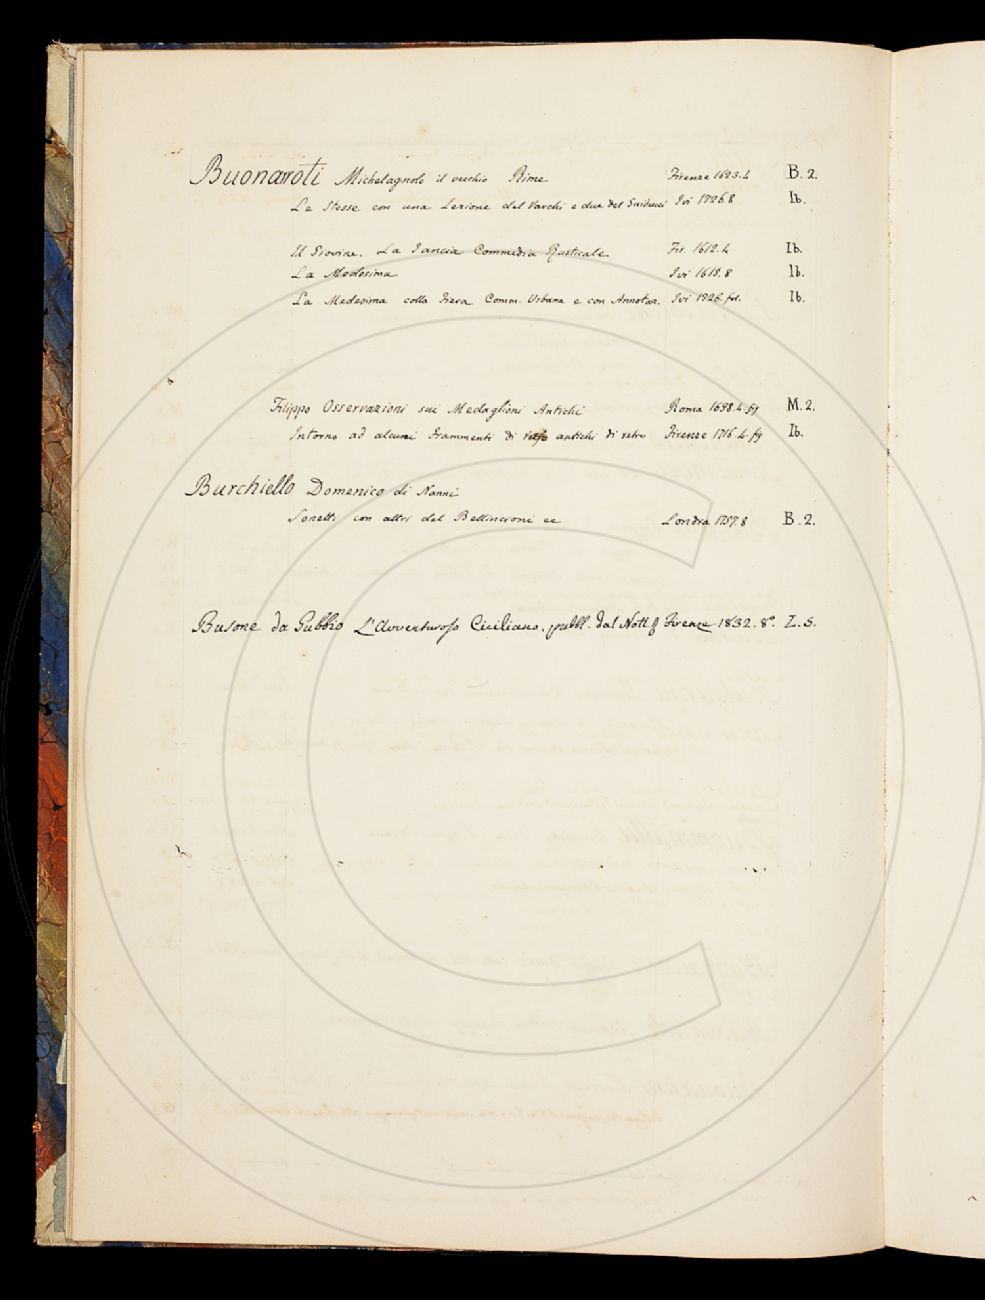 Buonarroti Michelagnolo il vecchio Rime Firenze 1623.4 B. 2.
Le Stesse con una Lezione del Varchi e due del Guiducci Ivi 1726.8 Ib.
Il Giovine. La Tancia Commedia Rusticale Fir. 1612.4 Ib.
La Medesima Ivi 1615.8 Ib.
La Medesima colla Fiera Comm. Urbana e con Annotaz. Ivi 1726. fol. Ib.
Filippo Osservazioni sui Medaglioni Antichi Roma 1698.4. fig M. 2.
Intorno ad alcuni Frammenti di vasi antichi di vetro Firenze 1716.4. fig Ib.
Burchiello Domenico di Nanni
Sonetti con altri del Bellincioni ec Londra 1757.8 B. 2.
Busone da Gubbio L'Avventuroso Ciciliano, pubbl. dal Nott. Firenze 1832. 8°. Z. 5.